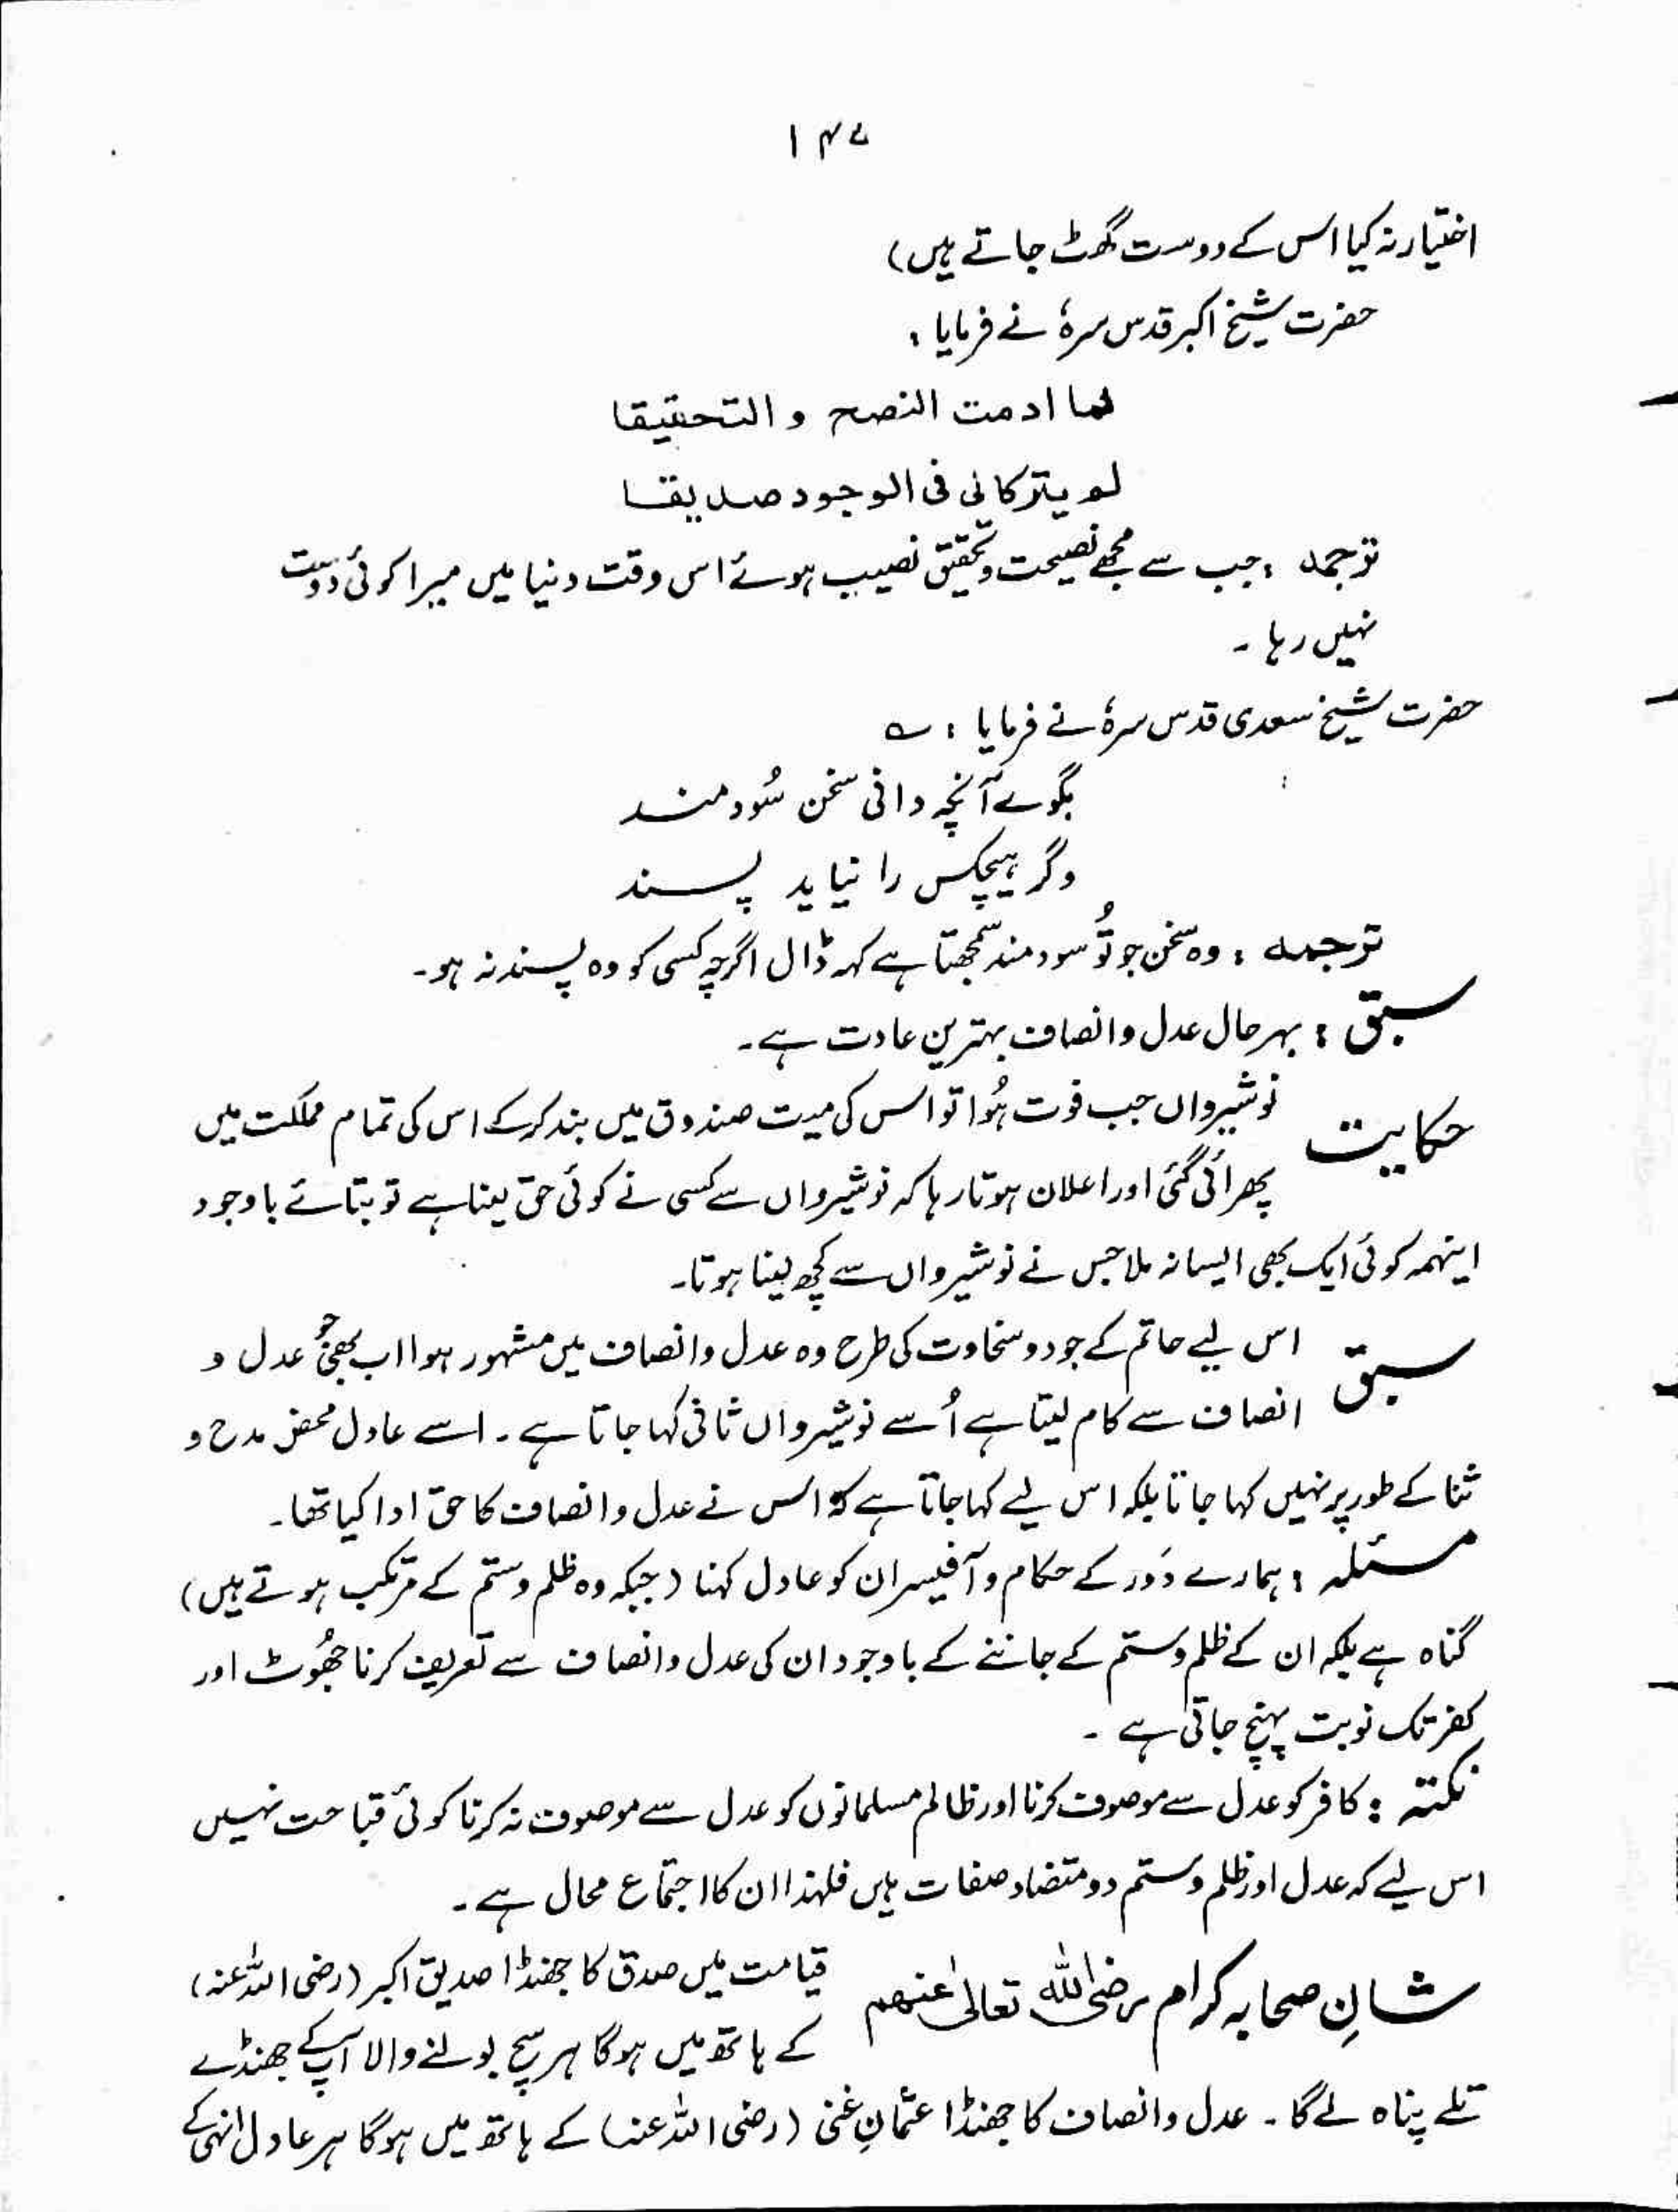 ۱۴۷
اختیار نہ کیا اس کے دوست گھٹ جاتے ہیں)
حضرت شیخ اکبر قدس سرہٗ نے فرمایا :
لما ادمت النصح و التحقیقا
لو یترکانی فی الوجود صدیقا
ترجمہ : جب سے مجھے نصیحت و تحقیق نصیب ہوئے اس وقت دنیا میں میرا کوئی دوست
نہیں رہا ۔
حضرت شیخ سعدی قدس سرہٗ نے فرمایا : ؎
بگوے آنچہ دانی سخن سُود مند
وگر ہیچکس را نیاید پسند
ترجمہ : وہ سخن جو تُو سود مند سمجھتا ہے کہہ ڈال اگرچہ کسی کو وہ پسند نہ ہو۔
سبق : بہرحال عدل و انصاف بہترین عادت ہے۔
حکایت نوشیرواں جب فوت ہُوا تو اس کی میت صندوق میں بند کر کے اس کی تمام مملکت میں
پھرائی گئی اور اعلان ہوتا رہا کہ نوشیرواں سے کسی نے کوئی حق لینا ہے تو بتائے باوجود
اینہمہ کوئی ایک بھی ایسا نہ ملا جس نے نوشیرواں سے کچھ لینا ہوتا۔
سبق اس لیے حاتم کے جود و سخاوت کی طرح وہ عدل و انصاف میں مشہور ہوا اب بھی جو عدل و
انصاف سے کام لیتا ہے اُسے نوشیرواں ثانی کہا جاتا ہے ۔ اسے عادل محض مدح و
ثنا کے طور پر نہیں کہا جاتا بلکہ اس لیے کہا جاتا ہے کہ اس نے عدل و انصاف کا حق ادا کیا تھا۔
مسئلہ : ہمارے دَور کے حکام و آفیسران کو عادل کہنا (جبکہ وہ ظلم و ستم کے مرتکب ہوتے ہیں)
گناہ ہے بلکہ ان کے ظلم و ستم کے جاننے کے باوجود ان کی عدل و انصاف سے تعریف کرنا جھُوٹ اور
کفر تک نوبت پہنچ جاتی ہے ۔
نکتہ : کافر کو عدل سے موصوف کرنا اور ظالم مسلمانوں کو عدل سے موصوف نہ کرنا کوئی قباحت نہیں
اس لیے کہ عدل اور ظلم و ستم دو متضاد صفات ہیں فلہٰذا ان کا اجتماع محال ہے ۔
شانِ صحابہ کرام رضی اللہ تعالیٰ عنہم قیامت میں صدق کا جھنڈا صدیق اکبر (رضی اللہ عنہ)
کے ہاتھ میں ہوگا ہر سچ بولنے والا آپ کے جھنڈے
تلے پناہ لے گا ۔ عدل و انصاف کا جھنڈا عثمانِ غنی (رضی اللہ عنہ) کے ہاتھ میں ہوگا ہر عادل انہی کے